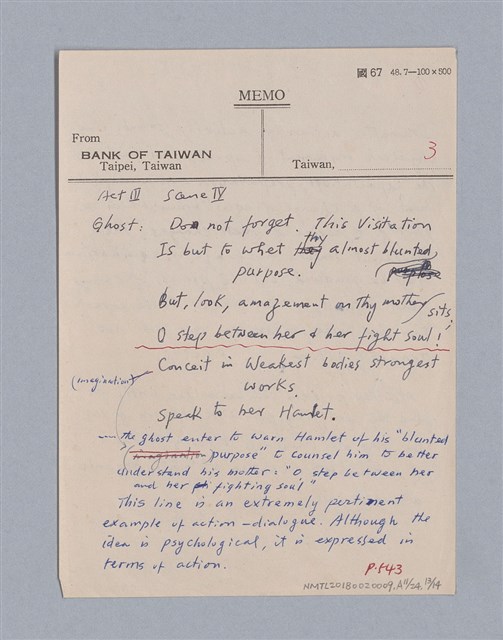 國 67 48.7—100×500
MEMO
From
BANK OF TAIWAN
Taipei, Taiwan
Taiwan,
3
Act III Scene IV
Ghost: Do not forget. This Visitation
Is but to whet thy almost blunted
purpose.
But, look, amazement on thy mother sits;
O step between her & her fight soul!
Conceit in Weakest bodies strongest
(imagination)
works.
Speak to her Hamlet.
— the ghost enter to warn Hamlet of his "blunted
purpose" to counsel him to better
understand his mother: "O, step between her
and her fighting soul"
This line is an extremely pertinent
example of action-dialogue. Although the
idea is psychological, it is expressed in
terms of action.
P.543
NMTL20180020009, A11/24, 13/14